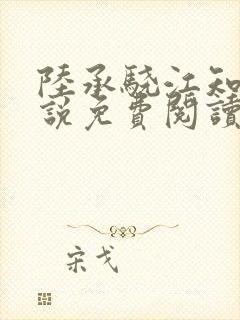 陸承驍江知
說免費閱讀
宋戈